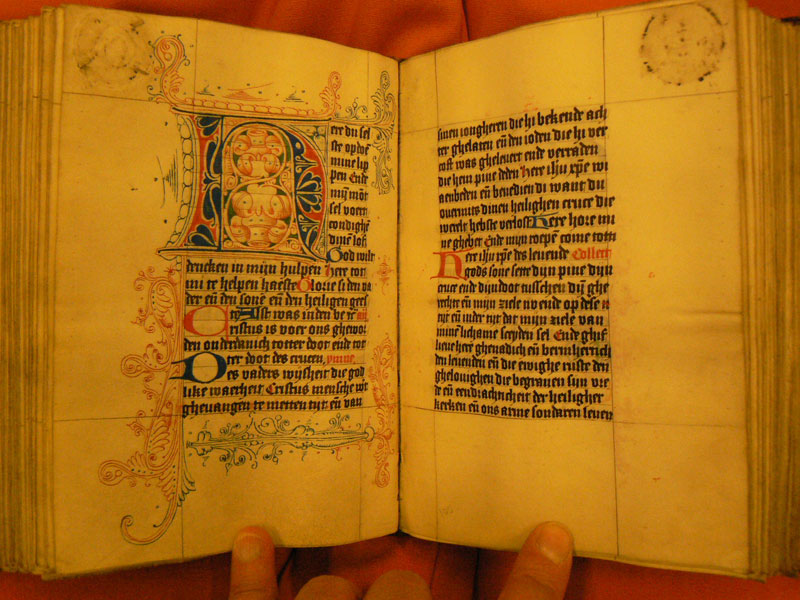 ere du sel
ste opdoē
mine lip
pen Ende
mijn mōt
sel voer
condighē
dinē lof
God wilt
dencken in mijn hulpen here com
mi te helpen haeste Glorie si den va
der eñ den sone eñ den heiligen gees
Als was in den be
Cristus is voer ons ghewor
den onderdanich totter doot ende tot
ter doot des crucen ymne
Des vaders wijsheit die god
like waerheit Cristus mensche wt
ghevangen te metten tijt eñ van
sinen iongheren die hi bekende ach
ter ghelaten eñ den ioden die hi ver
cost was ghelevert ende verraden
die hem pine deden here ihu xpe wi
aenbeden eñ benedien di want du
overmits dinen heilighen cruce die
werelt hebste verlost Here hore mi
ne ghebet Ende mijn roepē come totti
Here ihu xpe des levende Collect
gods sone sette dijn pine dijn
cruce ende dijn doot tusschen dijn ghe
rechte eñ mijn ziele nv ende op dese
tijt eñ inder tijt dat mijn ziele van
minē lichame sceyden sel Ende ghif
lieve heer ghenadich eñ bermherticheit
den levenden eñ die ewighe ruste den
ghelovighen die begraven sijn vre
de eñ eendrachticheit der heiligher
kerken eñ ons arme sondaren leven